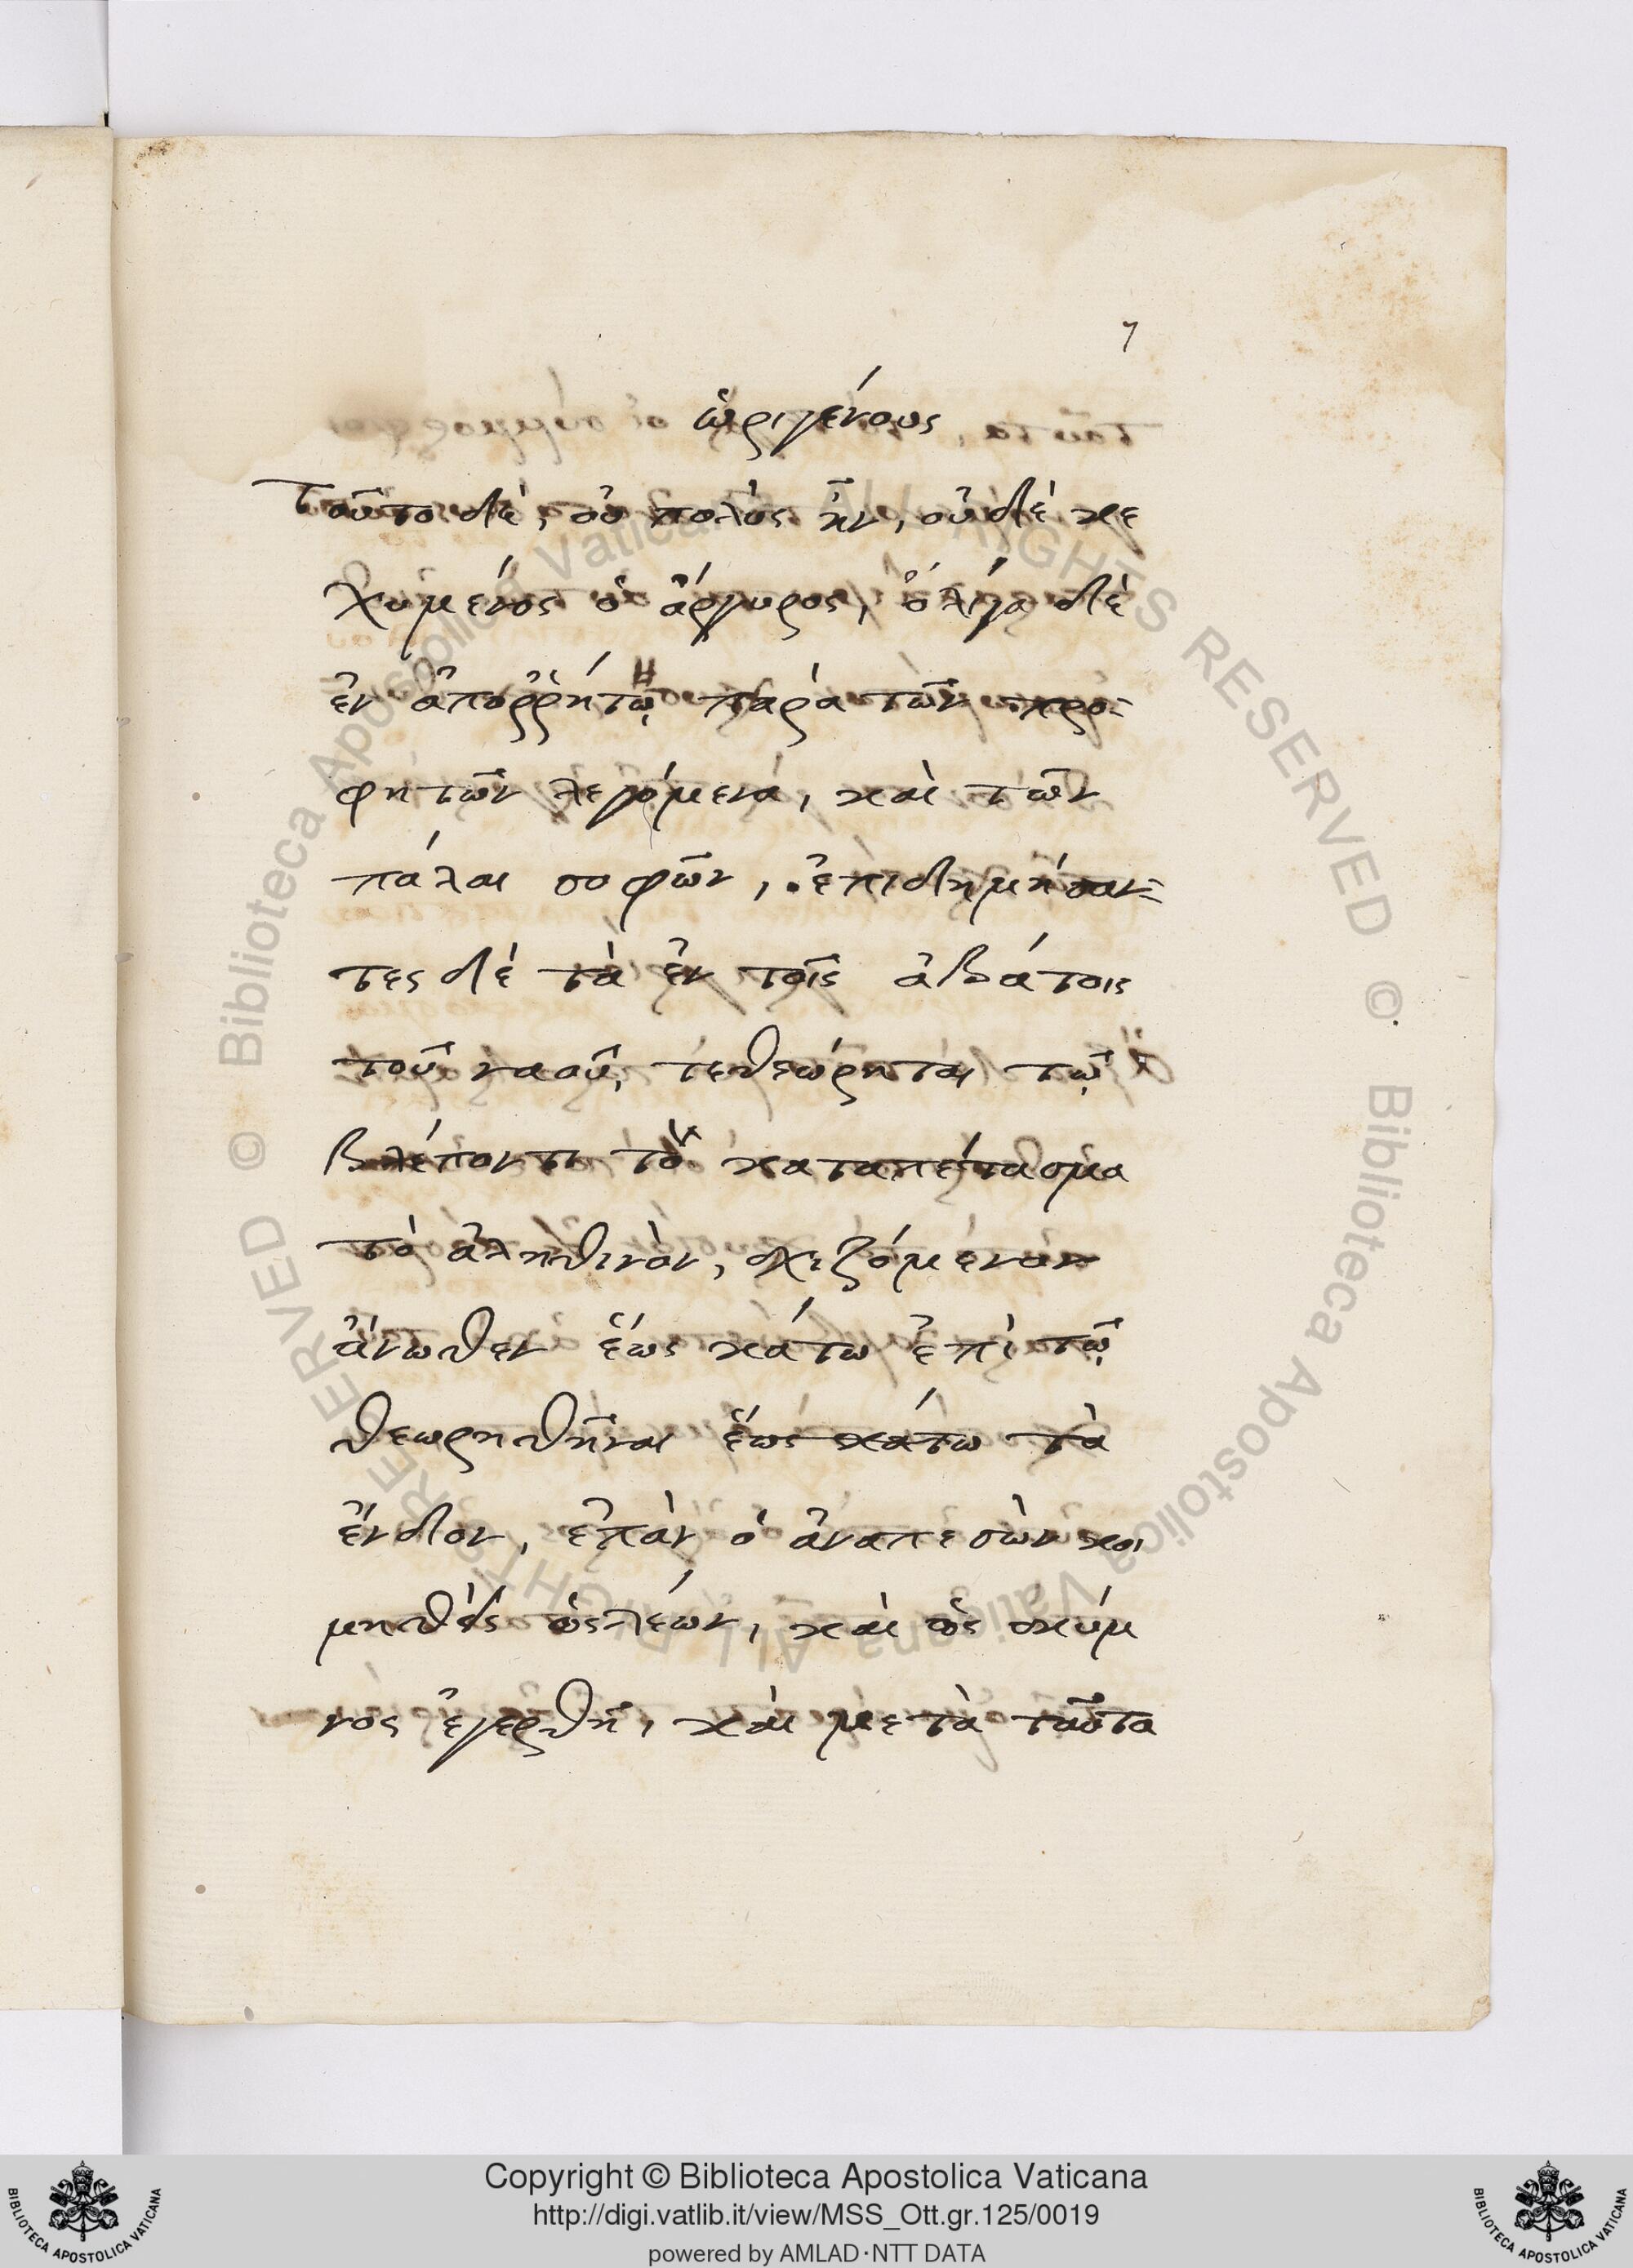 7
ὠριγένους
Τοῦτο δὲ, οὐ πολὺς ἦν, οὐδὲ κε
χυμένος ὁ ἄργυρος, ὀλίγα δὲ
ἐν ἀποῤῥήτῳ παρὰ τῶν προ-
φητῶν λεγόμενα, καὶ τῶν
πάλαι σοφῶν, ἐπιδημήσαν-
τες δὲ τὰ ἐν τοῖς ἀβάτοις
τοῦ ναοῦ, τεθεώρηται τῷ
βλέποντι τὸ καταπέτασμα
τὸ ἀληθινὸν, σχιζόμενον
ἄνωθεν ἕως κάτω ἐπὶ τῷ
θεωρηθῆναι ἕως κάτω τὰ
ἔνδον, ἐπὰν ὁ ἀναπεσὼν κοι
μηθεὶς ὡς λέων, καὶ ὡς σκύμ
νος ἐγερθῇ, καὶ μετὰ ταῦτα
Copyright © Biblioteca Apostolica Vaticana
http://digi.vatlib.it/view/MSS_Ott.gr.125/0019
powered by AMLAD·NTT DATA
BIBLIOTECA APOSTOLICA VATICANA
BIBLIOTECA APOSTOLICA VATICANA
© Biblioteca Apostolica Vaticana ALL RIGHTS RESERVED © Biblioteca Apostolica Vaticana ALL RIGHTS RESERVED